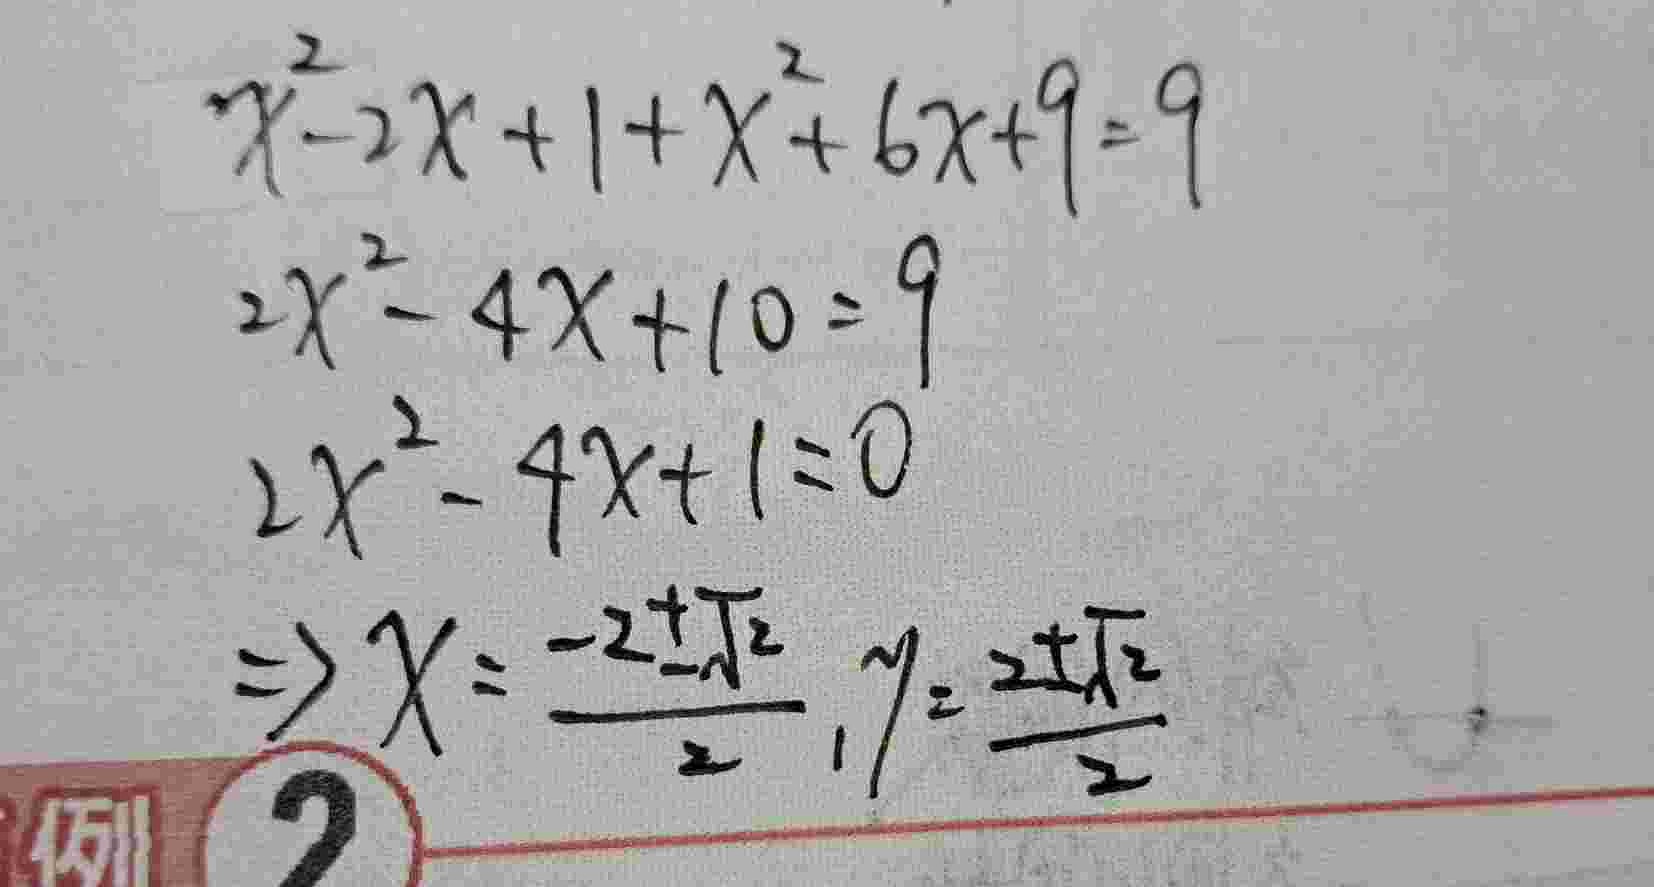 x²-2x+1+x²+6x+9=9
2x²-4x+10=9
2x²-4x+1=0
⇒x=(-2±√2)/2, y=(2±√2)/2
例 2